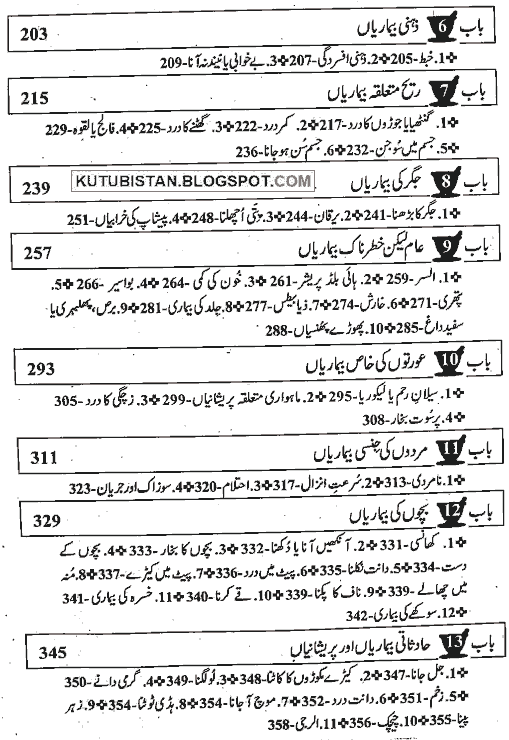 باب 6 ذہنی بیماریاں 203
❖1. خبط-205❖2. ذہنی افسردگی-207❖3. بے خوابی یا نیند نہ آنا-209
باب 7 ریح متعلقہ بیماریاں 215
❖1. گنٹھیا یا جوڑوں کا درد-217❖2. کمر درد-222❖3. گھٹنے کا درد-225❖4. فالج یا لقوہ-229
❖5. جسم میں سوجن-232❖6. جسم سُن ہو جانا-236
باب 8 جگر کی بیماریاں 239
KUTUBISTAN.BLOGSPOT.COM
❖1. جگر کا بڑھنا-241❖2. یرقان-244❖3. پتّی اُچھلنا-248❖4. پیشاپ کی خرابیاں-251
باب 9 عام لیکن خطرناک بیماریاں 257
❖1. السر-259❖2. ہائی بلڈ پریشر-261❖3. خُون کی کمی-264❖4. بواسیر-266❖5.
پتھری-271❖6. خارش-274❖7. ذیابیطس-277❖8. جِلد کی بیماری-281❖9. برص، پھلبہری یا
سفید داغ-285❖10. پھوڑے پھنسیاں-288
باب 10 عورتوں کی خاص بیماریاں 293
❖1. سیلانِ رحم یا لیکوریا-295❖2. ماہواری متعلقہ پریشانیاں-299❖3. زچگی کا درد-305
❖4. پرسُوت بخار-308
باب 11 مردوں کی جنسی بیماریاں 311
❖1. نامردی-313❖2. سُرعتِ انزال-317❖3. احتلام-320❖4. سوزاک اور جریان-323
باب 12 بچّوں کی بیماریاں 329
❖1. کھانسی-331❖2. آنکھیں آنا یا دُکھنا-332❖3. بچّوں کا بخار-333❖4. بچّوں کے
دست-334❖5. دانت نکلنا-335❖6. پیٹ میں درد-336❖7. پیٹ میں کیڑے-337❖8. مُنہ
میں چھالے-339❖9. ناف کا پکنا-339❖10. قے کرنا-340❖11. خسرہ کی بیماری-341
❖12. سوکھے کی بیماری-342
باب 13 حادثاتی بیماریاں اور پریشانیاں 345
❖1. جل جانا-347❖2. کیڑے مکوڑوں کا کاٹنا-348❖3. لُو لگنا-349❖4. گرمی دانے-350
❖5. زخم-351❖6. دانت درد-352❖7. موچ آ جانا-354❖8. ہڈی ٹوٹنا-354❖9. زہر
پینا-355❖10. چیچک-356❖11. الرجی-358